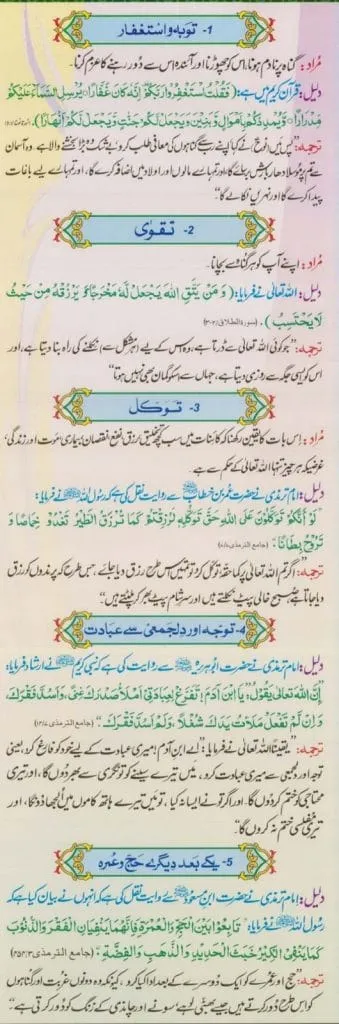 1- توبہ و استغفار
مُراد: گناہ پر نادم ہونا، اس کو چھوڑنا اور آئندہ اس سے دُور رہنے کا عزم کرنا۔
دلیل: قرآن کریم میں ہے: ﴿فَقُلْتُ اسْتَغْفِرُوْا رَبَّكُمْ اِنَّهٗ كَانَ غَفَّارًا ۙ يُّرْسِلِ السَّمَآءَ عَلَيْكُمْ
مِّدْرَارًا ۙ وَّيُمْدِدْكُمْ بِاَمْوَالٍ وَّبَنِيْنَ وَيَجْعَلْ لَّكُمْ جَنّٰتٍ وَّيَجْعَلْ لَّكُمْ اَنْهٰرًا﴾
ترجمہ: "پس میں (نوح) نے کہا اپنے رب سے گناہوں کی معافی طلب کرو، بے شک وہ بڑا بخشنے والا ہے۔ وہ آسمان
سے تم پر موسلا دھار بارش برسائے گا، اور تمہارے مالوں اور اولاد میں اضافہ کرے گا، اور تمہارے لیے باغات
پیدا کرے گا اور نہریں نکالے گا"
2- تقوٰی
مُراد: اپنے آپ کو ہر گناہ سے بچانا۔
دلیل: اللہ تعالیٰ نے فرمایا: ﴿وَ مَنْ يَّتَّقِ اللّٰهَ يَجْعَلْ لَّهٗ مَخْرَجًا وَّ يَرْزُقْهُ مِنْ حَيْثُ
لَا يَحْتَسِبُ﴾. (سورۃ الطلاق/۲-۳)
ترجمہ: "جو کوئی اللہ تعالیٰ سے ڈرتا ہے، وہ اس کے لیے (ہر مشکل سے) نکلنے کی راہ بنا دیتا ہے، اور
اس کو ایسی جگہ سے روزی دیتا ہے، جہاں سے اس کو گمان بھی نہیں ہوتا"
3- توکل
مُراد: اِس بات کا یقین رکھنا کہ کائنات میں سب کچھ تخلیق، رزق، نفع، نقصان، بیماری، موت اور زندگی،
غرضیکہ ہر چیز تنہا اللہ تعالیٰ کے حکم سے ہے۔
دلیل: امام ترمذی نے حضرت عمر بن خطاب ؓ سے روایت نقل کی ہے کہ رسول اللہ ﷺ نے فرمایا:
"لَوْ اَنَّكُمْ تَوَكَّلُوْنَ عَلَى اللّٰهِ حَقَّ تَوَكُّلِهٖ لَرُزِقْتُمْ كَمَا تُرْزَقُ الطَّيْرُ تَغْدُوْ خِمَاصًا وَ
تَرُوْحُ بِطَانًا". (جامع الترمذی ۷/۸)
ترجمہ: "اگر تم اللہ تعالیٰ پر کما حقہ توکل کرو تو تمہیں اس طرح رزق دیا جائے، جس طرح کہ پرندوں کو رزق
دیا جاتا ہے، صبح خالی پیٹ نکلتے ہیں اور سرِ شام پیٹ بھر کر پلٹتے ہیں"
4- توجہ اور دلجمعی سے عبادت
دلیل: امام ترمذی نے حضرت ابوہریرہ ؓ سے روایت کی ہے کہ نبی کریم ﷺ نے ارشاد فرمایا:
"اِنَّ اللّٰهَ تَعَالٰى يَقُوْلُ: "يَا ابْنَ اٰدَمَ! تَفَرَّغْ لِعِبَادَتِيْ اَمْلَأْ صَدْرَكَ غِنًى، وَاَسُدَّ فَقْرَكَ،
وَاِنْ لَّمْ تَفْعَلْ مَلَأْتُ يَدَكَ شُغْلًا، وَلَمْ اَسُدَّ فَقْرَكَ". (جامع الترمذی)
ترجمہ: "یقیناً اللہ تعالیٰ نے فرمایا: "اے ابن آدم! میری عبادت کے لیے خود کو فارغ کرو، یعنی
توجہ اور دلجمعی سے میری عبادت کرو، میں تیرے سینے کو تونگری سے بھر دوں گا، اور تیری
محتاجی کو ختم کر دوں گا۔ اور اگر تو نے ایسا نہ کیا، تو میں تیرے ہاتھ کاموں میں اُلجھا دونگا، اور
تیری مفلسی ختم نہ کروں گا"
5- یکے بعد دیگرے حج و عمرہ
دلیل: امام ترمذی نے حضرت ابن مسعود ؓ سے روایت نقل کی ہے کہ انہوں نے بیان کیا ہے کہ
رسول اللہ ﷺ نے فرمایا: "تَابِعُوْا بَيْنَ الْحَجِّ وَالْعُمْرَةِ فَاِنَّهُمَا يَنْفِيَانِ الْفَقْرَ وَالذُّنُوْبَ
كَمَا يَنْفِي الْكِيْرُ خَبَثَ الْحَدِيْدِ وَالذَّهَبِ وَالْفِضَّةِ". (جامع الترمذی ۴۵۴/۳)
ترجمہ: "حج اور عمرے کو ایک دوسرے کے بعد ادا کیا کرو، کیونکہ وہ دونوں غربت اور گناہوں
کو اس طرح دُور کرتے ہیں جیسے بھٹی لوہے، سونے اور چاندی کے زنگ کو دُور کرتی ہے"